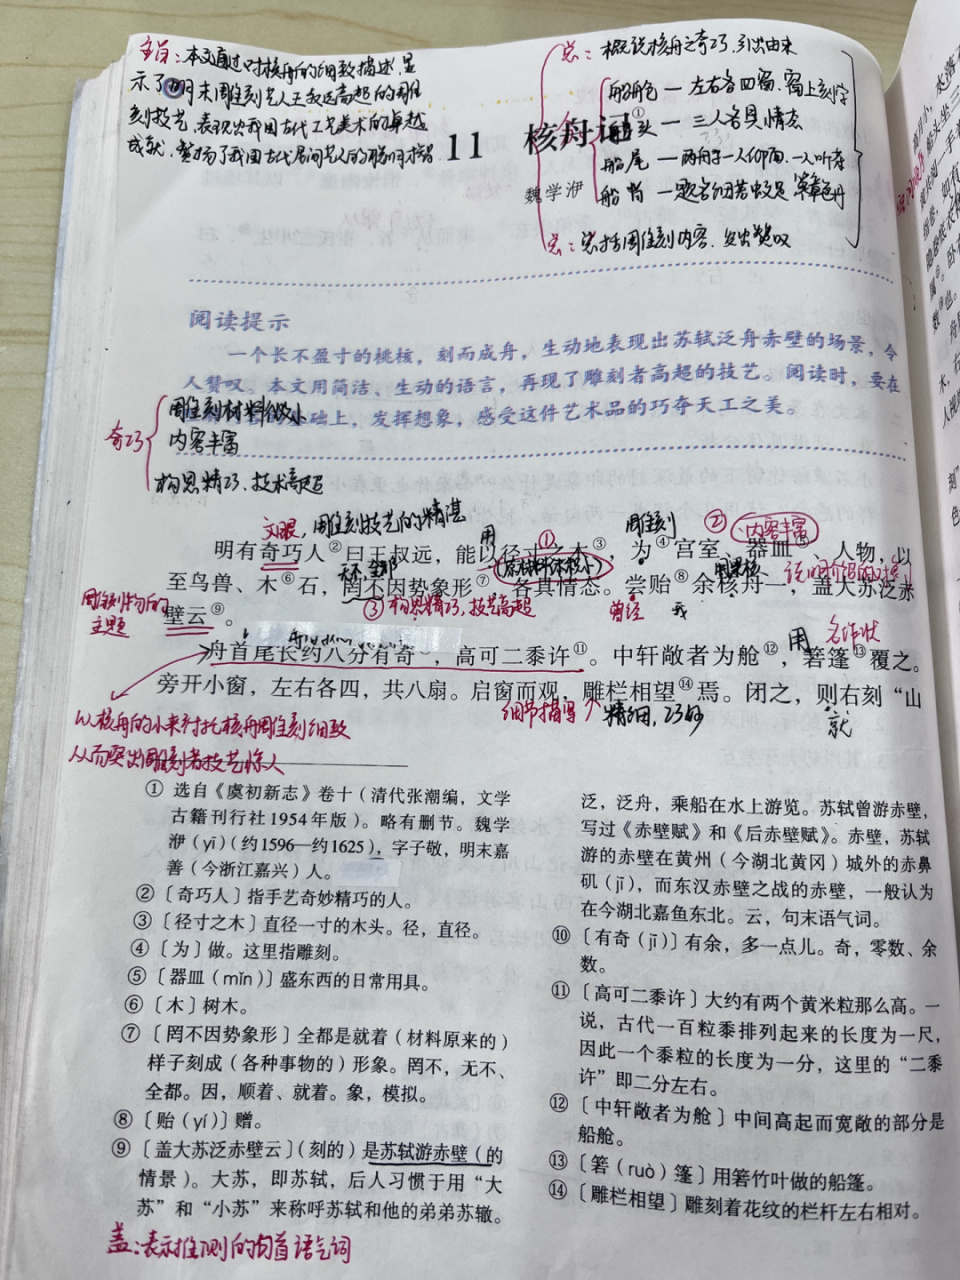 主旨：本文通过对核舟的细致描述,显
示了明末雕刻艺人王叔远高超的雕
刻技艺,表现出我国古代工艺美术的卓越
成就,赞扬了我国古代民间艺人的聪明才智
总：概说核舟之奇巧,引出由来
船舱 — 左右各四窗,窗上刻字
船头 — 三人各具情态
船尾 — 两舟子一人仰面,一人听茶
船背 — 题名细若蚊足
总：总括雕刻内容,发出赞叹
11 核舟记①
魏学洢
阅读提示
一个长不盈寸的桃核，刻而成舟，生动地表现出苏轼泛舟赤壁的场景，令
人赞叹。本文用简洁、生动的语言，再现了雕刻者高超的技艺。阅读时，要在
基础上，发挥想象，感受这件艺术品的巧夺天工之美。
奇巧
雕刻材料微小
内容丰富
构思精巧,技术高超
文眼,雕刻技艺的精湛
用
①
雕刻
②内容丰富
明有奇巧人②曰王叔远，能以径寸之木③，为④宫室、器皿⑤、人物，以
(原材料体积小)
至鸟兽、木⑥石，罔不因势象形⑦，各具情态。尝贻⑧余核舟一，盖大苏泛赤
雕刻物的
主题
③构思精巧,技艺高超
曾经
我
壁云⑨。
用
名作状
舟首尾长约八分有奇⑩，高可二黍许⑪。中轩敞者为舱⑫，箬篷⑬覆之。
旁开小窗，左右各四，共八扇。启窗而观，雕栏相望⑭焉。闭之，则右刻“山
细节描写
精细,巧妙
就
以核舟的小来衬托核舟雕刻细致
从而突出雕刻者技艺惊人
① 选自《虞初新志》卷十（清代张潮编，文学
古籍刊行社1954年版）。略有删节。魏学
洢（yī）（约1596—约1625），字子敬，明末嘉
善（今浙江嘉兴）人。
②〔奇巧人〕指手艺奇妙精巧的人。
③〔径寸之木〕直径一寸的木头。径，直径。
④〔为〕做。这里指雕刻。
⑤〔器皿（mǐn）〕盛东西的日常用具。
⑥〔木〕树木。
⑦〔罔不因势象形〕全都是就着（材料原来的）
样子刻成（各种事物的）形象。罔不，无不、
全都。因，顺着、就着。象，模拟。
⑧〔贻（yí）〕赠。
⑨〔盖大苏泛赤壁云〕（刻的）是苏轼游赤壁（的
情景）。大苏，即苏轼，后人习惯于用“大
苏”和“小苏”来称呼苏轼和他的弟弟苏辙。
盖：表示推测的句首语气词
泛，泛舟，乘船在水上游览。苏轼曾游赤壁，
写过《赤壁赋》和《后赤壁赋》。赤壁，苏轼
游的赤壁在黄州（今湖北黄冈）城外的赤鼻
矶（jī），而东汉赤壁之战的赤壁，一般认为
在今湖北嘉鱼东北。云，句末语气词。
⑩〔有奇（jī）〕有余，多一点儿。奇，零数、余
数。
⑪〔高可二黍许〕大约有两个黄米粒那么高。一
说，古代一百粒黍排列起来的长度为一尺，
因此一个黍粒的长度为一分，这里的“二黍
许”即二分左右。
⑫〔中轩敞者为舱〕中间高起而宽敞的部分是
船舱。
⑬〔箬（ruò）篷〕用箬竹叶做的船篷。
⑭〔雕栏相望〕雕刻着花纹的栏杆左右相对。